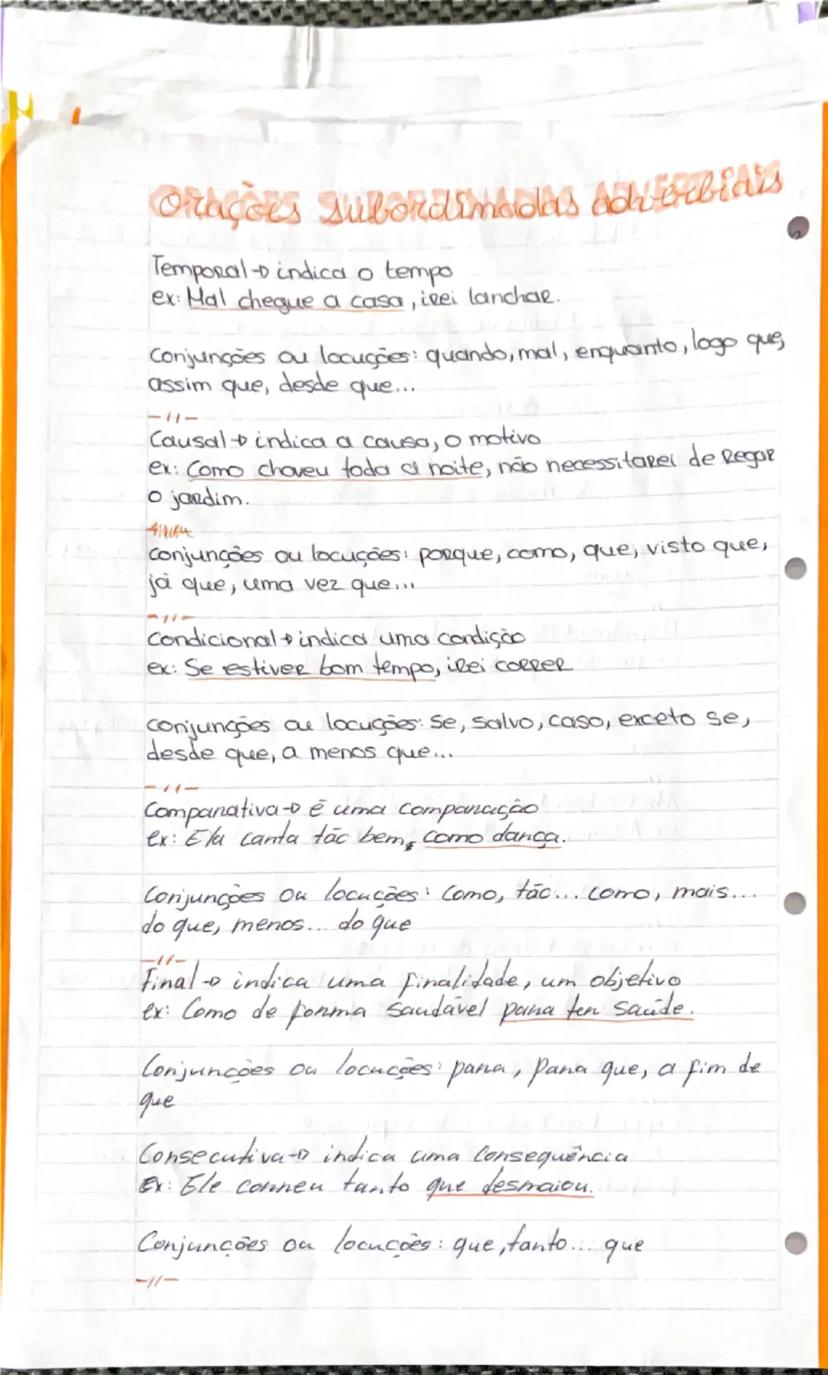 Orações subordinadas adverbiais
Temporal → indica o tempo
ex: Mal chegue a casa, irei lanchar.
Conjunções ou locuções: quando, mal, enquanto, logo que,
assim que, desde que...
-11-
Causal → indica a causa, o motivo
ex: Como choveu toda a noite, não necessitarei de regar
o jardim.
Conjunções ou locuções: porque, como, que, visto que,
já que, uma vez que...
-11-
Condicional → indica uma condição
ex: Se estiver bom tempo, irei correr
Conjunções ou locuções: Se, salvo, caso, exceto se,
desde que, a menos que...
-11-
Comparativa → é uma comparação
ex: Ela canta tão bem, como dança.
Conjunções ou locuções: como, tão... como, mais...
do que, menos... do que
-11-
Final → indica uma finalidade, um objetivo
ex: Como de forma saudável para ter saúde.
Conjunções ou locuções: para, para que, a fim de
que
Consecutiva → indica uma consequência
Ex: Ele correu tanto que desmaiou.
Conjunções ou locuções: que, tanto... que
-11-